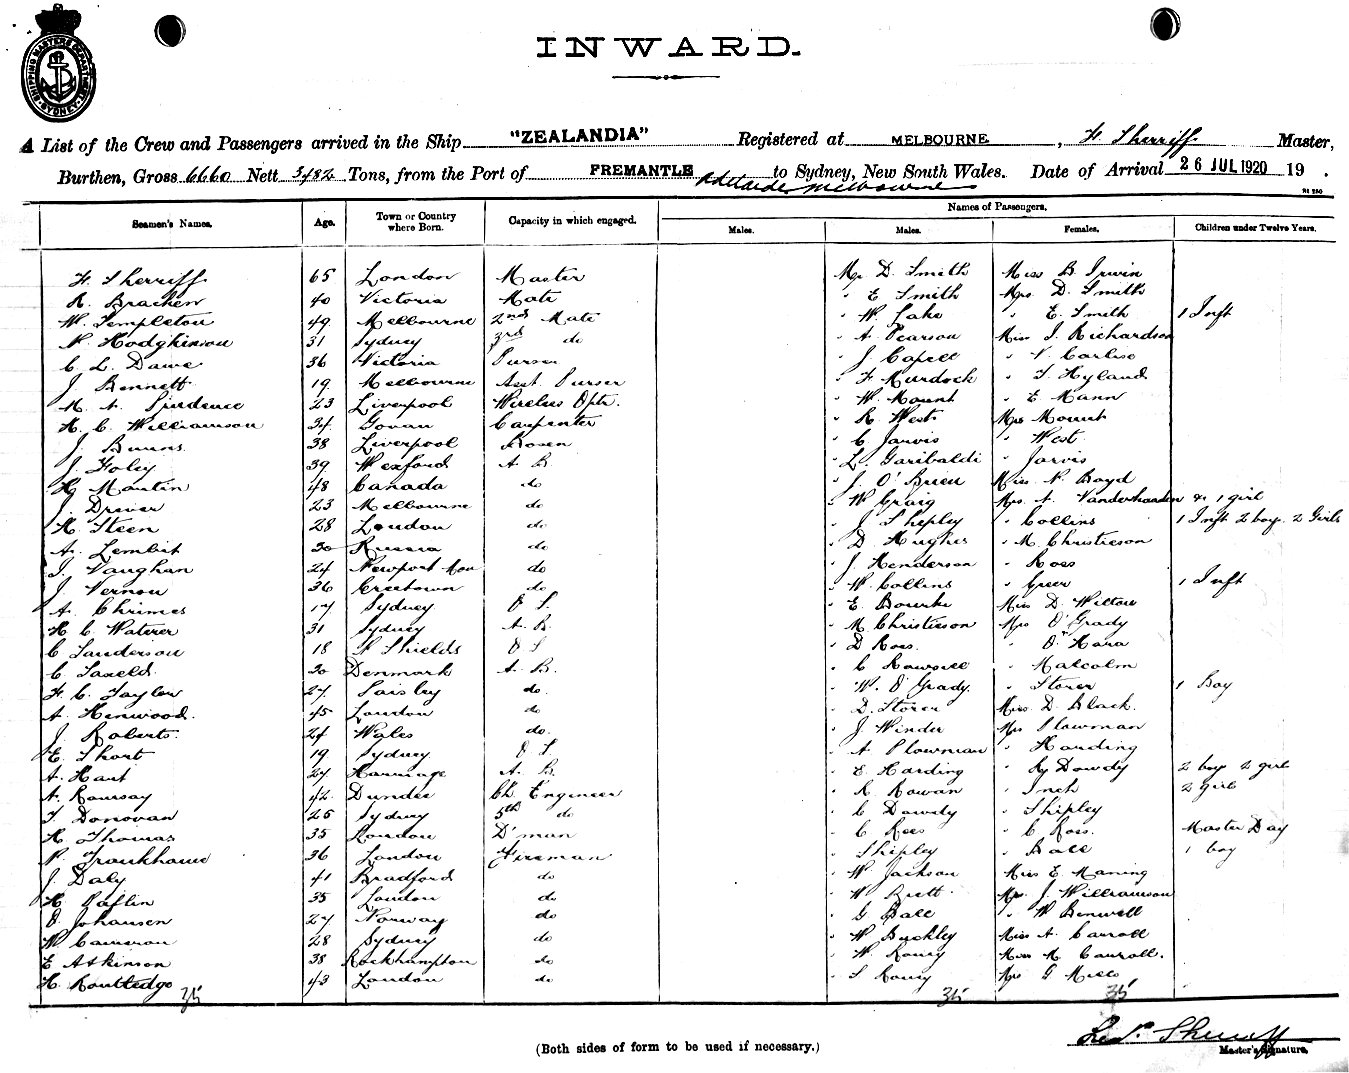 SHIPPING MASTERS DEPARTMENT SYDNEY
INWARD.
A List of the Crew and Passengers arrived in the Ship "ZEALANDIA" Registered at MELBOURNE, F. Sherriff Master,
Burthen, Gross 6660 Nett 3482 Tons, from the Port of FREMANTLE Adelaide Melbourne to Sydney, New South Wales. Date of Arrival 26 JUL 1920 19 .
Names of Passengers.
Seamen's Names. Age. Town or Country where Born. Capacity in which engaged. Males. Males. Females. Children under Twelve Years.
F. Sherriff 65 London Master Mr D. Smith Miss B. Irwin
R. Bracken 40 Victoria Mate " E Smith Mrs D. Smith
W. Templeton 49 Melbourne 2nd Mate " W. Lake " E. Smith 1 Inft
N. Hodgkinson 31 Sydney 3rd do " A Pearson Miss J. Richardson
C L. Dawe 36 Victoria Purser " J. Capell " V. Carlise
J. Bennett 19 Melbourne Asst. Purser " F Murdock " I Hyland
M. A. Prudence 23 Liverpool Wireless Optr. " W. Mount " E Mann
H. C. Williamson 34 Govan Carpenter " R West Mrs Mount
J. Burns 38 Liverpool Bosen " C Jarvis " West
J. Foley 39 Wexford A B. " L. Garibaldi " Jarvis
H. Martin 48 Canada do " J. O'Brien Miss N. Boyd
J. Driver 23 Melbourne do " W Craig Mrs A. Vanderhaarden & 1 girl
H. Steen 28 London do " J Shepley " Collins 1 Inft 2 boys. 2 Girls
A. Lembit 30 Russia do " D Hughes " M. Christieson
J. Vaughan 24 Newport Mon do " J Henderson " Ross
J. Vernon 36 Creetown do " W. Collins " Greer 1 Inft
A. Chrimes 17 Sydney O S. " E. Bourke Miss D. Wilton
H C Waterer 31 Sydney A B. " M Christieson Mrs O'Grady
C Sanderson 18 N Shields O S " D Ross. " O'Hara
C 30 Denmark A B. " C Rowsell " Malcolm
F. C. Taylor 27 Paisley do. " W. O'Grady. " Storer 1 Boy
A. Henwood. 45 London do " D. Storer Miss D. Black.
J. Roberts. 24 Wales do. " J Winder Mrs Plowman
E. Short 19 Sydney O S. " A Plowman " Harding
A. Hart 27 A B. " E. Harding " Ry Dowdy 2 boys 2 girls
A. Ramsay 42 Dundee Ch Engineer " R. Rowan " Inch 2 girls
J. Donovan 25 Sydney 5th do " C Dowdy " Shipley
H Thomas 35 London D'man " C Rees " C Ross. Master Day
N. Tronkhame 36 London Fireman " Shipley " Ball 1 boy
J. Daly 41 Bradford do " W Jackson Miss E. Maning
H. Paflin 35 London do " W Brett Mrs J. Williamson
O. Johansen 27 Norway do " G Ball " W Benwell
W. Cameron 28 Sydney do " W Buckley Miss A. Carroll
E Atkinson 38 Rockhampton do " W. Roury Miss M. Carroll.
H. Routledge 43 London do " S Roury Mrs G Mills
35 35 35
Geo. Sherriff
Master's Signature.
(Both sides of form to be used if necessary.)